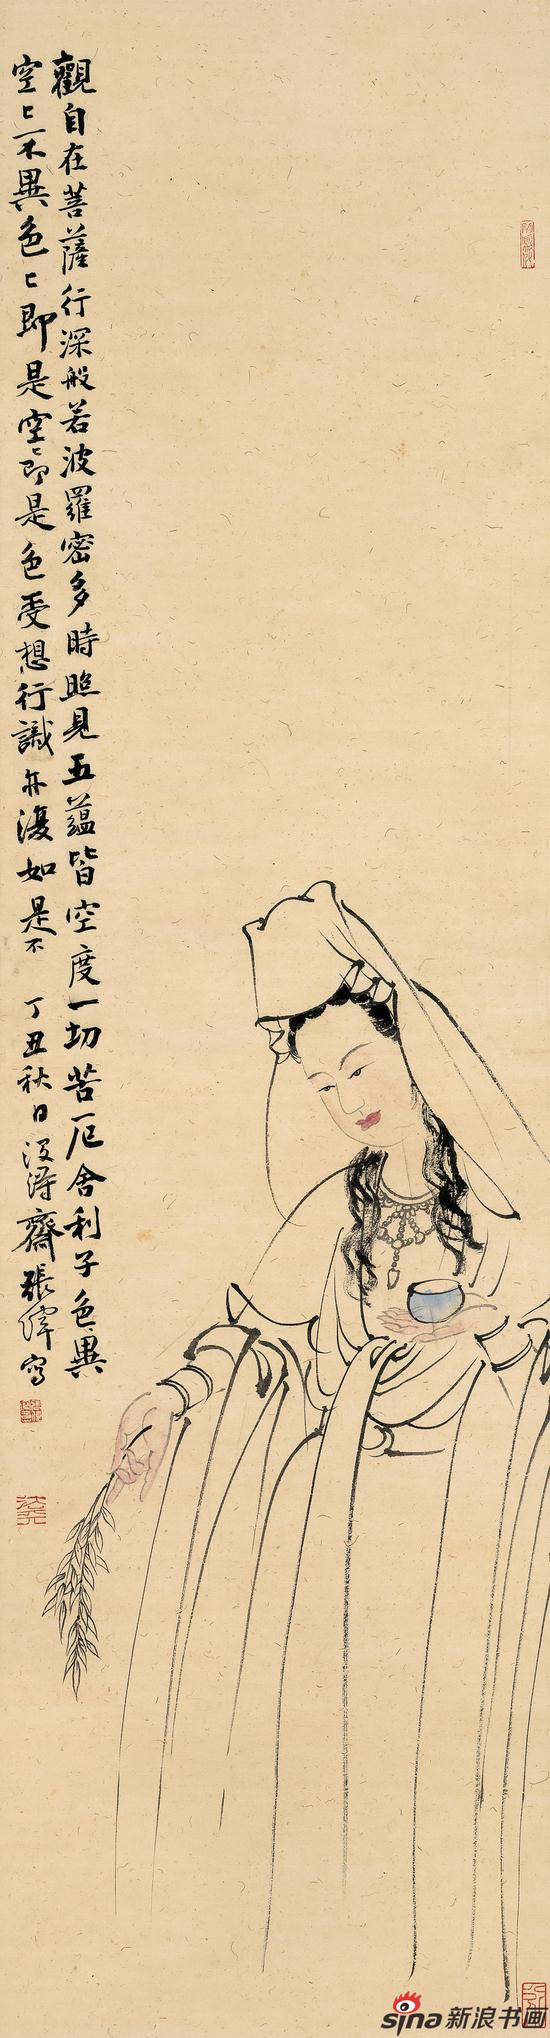 觀自在菩薩行深般若波羅密多時照見五蘊皆空度一切苦厄舍利子色異
空〻不異色〻即是空〻即是色受想行識亦復如是不 丁丑秋日 齋張 寫
sina新浪书画